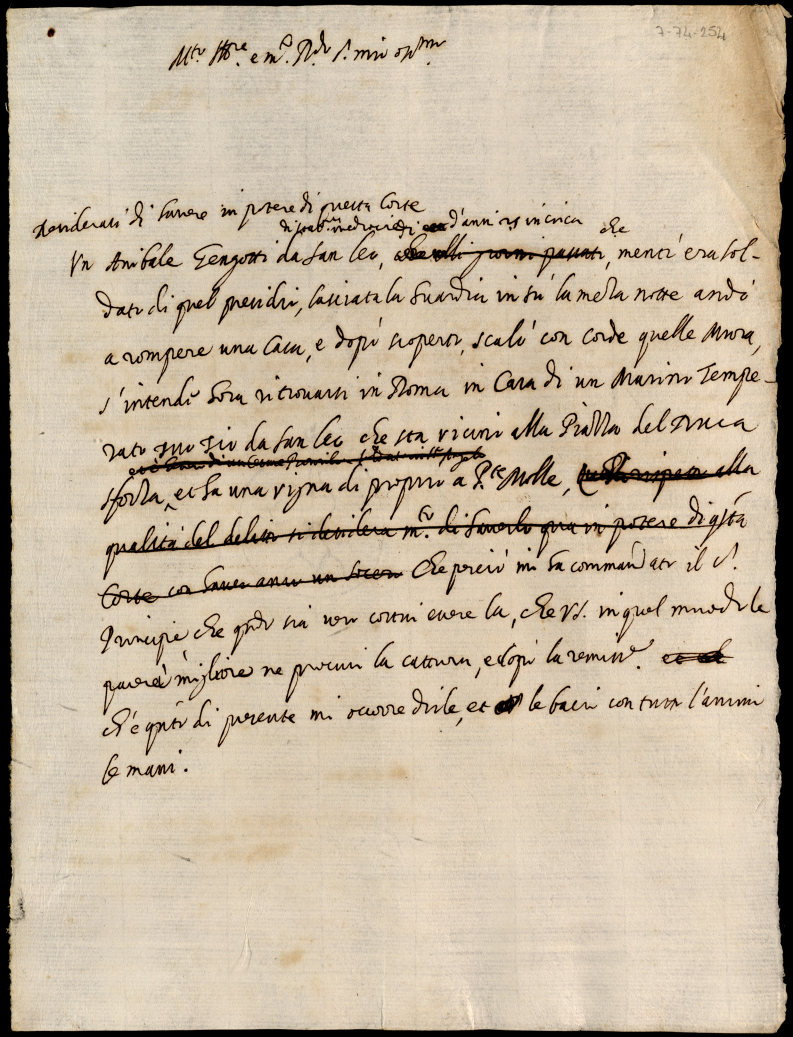 7-74-254
Mto Ill.re e m.o R.do S. mio oss.mo
desiderasi di havere in potere di questa Corte
di statura mediocre di d'anni 25 in circa che
Un Anibale Gengotti da San Leo, che alli giorni passati, mentr' era sol-
dato di quel presidio, lasciata la Guardia in sù la meza notte andò
a rompere una Casa, e dopò scoperto, scalò con corde quelle Mura,
s'intende hora ritrovarsi in Roma in Casa di un Marino Tempe-
rato suo Zio da San Leo che sta vicino alla Piazza del Duca
Sforza, et ha una vigna di proprio a P.te Molle, alla
qualità del delitto si desidera m.to di haverlo qua in potere di q.sta
Corte con haver anco un Che perciò mi ha commandato il S.
Principe che q.do sia vero costui essere là, che VS. in quel modo le
parerà migliore ne procuri la cattura, e dopò la remiss.e.
ch'è q.nto di presente mi occorre dirle, et le bacio con tutto l'animo
le mani.